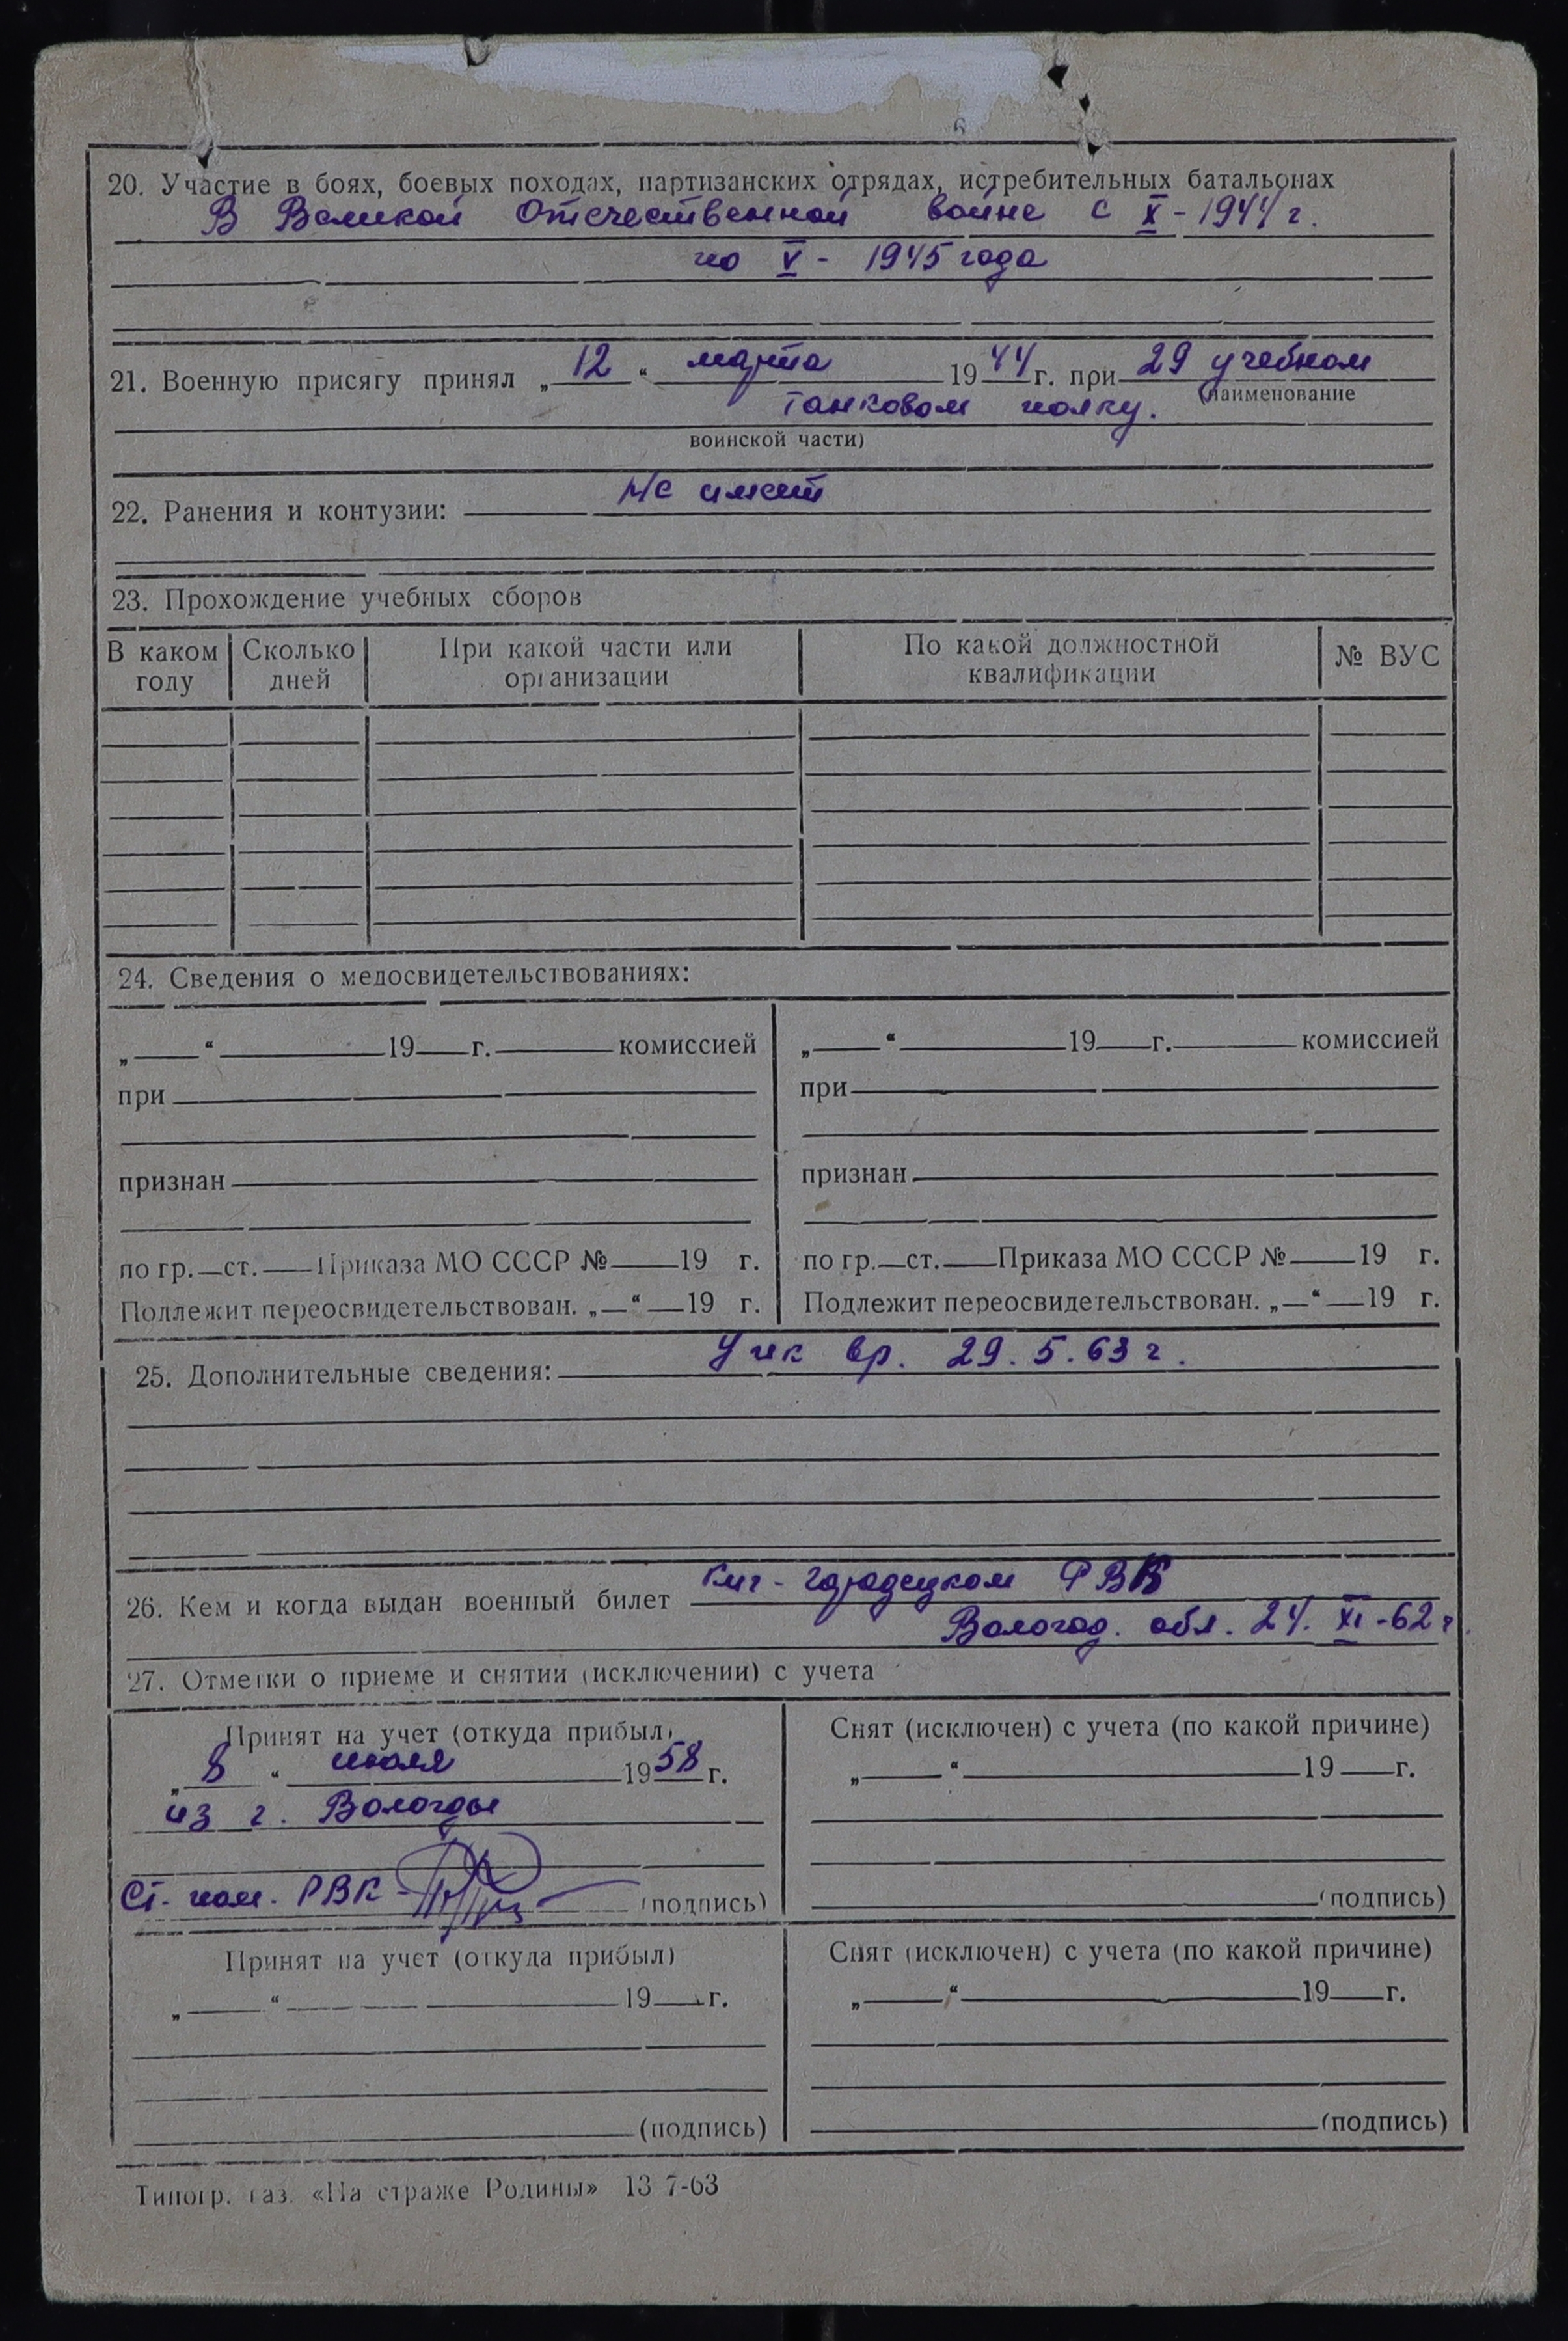 20. Участие в боях, боевых походах, партизанских отрядах, истребительных батальонах
В Великой Отечественной войне с X - 1944 г.
по V - 1945 года
21. Военную присягу принял „ 12 “ марта 19 44 г. при 29 учебном
(наименование
танковом полку.
воинской части)
22. Ранения и контузии: Не имеет
23. Прохождение учебных сборов
В каком году Сколько дней При какой части или организации По какой должностной квалификации № ВУС
24. Сведения о медосвидетельствованиях:
„ “ 19 г. комиссией „ “ 19 г. комиссией
при при
признан признан
по гр. ст. Приказа МО СССР № 19 г. по гр. ст. Приказа МО СССР № 19 г.
Подлежит переосвидетельствован. „ “ 19 г. Подлежит переосвидетельствован. „ “ 19 г.
25. Дополнительные сведения: вр. 29. 5. 63 г.
26. Кем и когда выдан военный билет Кич - городецком РВК
Вологод. обл. 24. XI - 62 г.
27. Отметки о приеме и снятии (исключении) с учета
Принят на учет (откуда прибыл) Снят (исключен) с учета (по какой причине)
„ 8 “ июля 19 58 г. „ “ 19 г.
из г. Вологды
Ст. пом. РВК - (подпись) (подпись)
Принят на учет (откуда прибыл) Снят (исключен) с учета (по какой причине)
„ “ 19 г. „ “ 19 г.
(подпись) (подпись)
Типогр. газ. «На страже Родины» 13 7-63